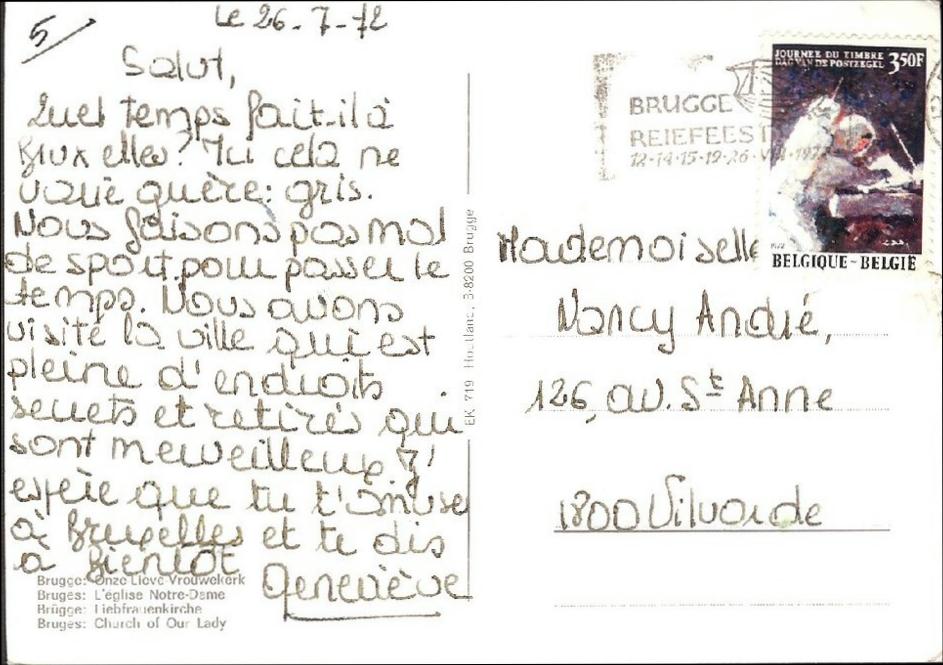 5
Le 26-7-72
Salut,
Quel temps fait-il à
Bruxelles? Ici cela ne
varie guère: gris.
Nous faisons pas mal
de sport pour passer le
temps. Nous avons
visité la ville qui est
pleine d'endroits
secrets et retirés qui
sont merveilleux. J'
espère que tu t'amuse
à Bruxelles et te dis
à Bientôt
Geneviève
Brugge: Onze Lieve Vrouwekerk
Bruges: L'église Notre-Dame
Brügge: Liebfrauenkirche
Bruges: Church of Our Lady
EK 719 Houtland, B-8200 Brugge
BRUGGE
REIEFEEST
12-14-15-19-26
JOURNEE DU TIMBRE
DAG VAN DE POSTZEGEL 3,50F
1972
BELGIQUE-BELGIË
Mademoiselle
Nancy André,
126, av. Ste Anne
1800 Vilvorde